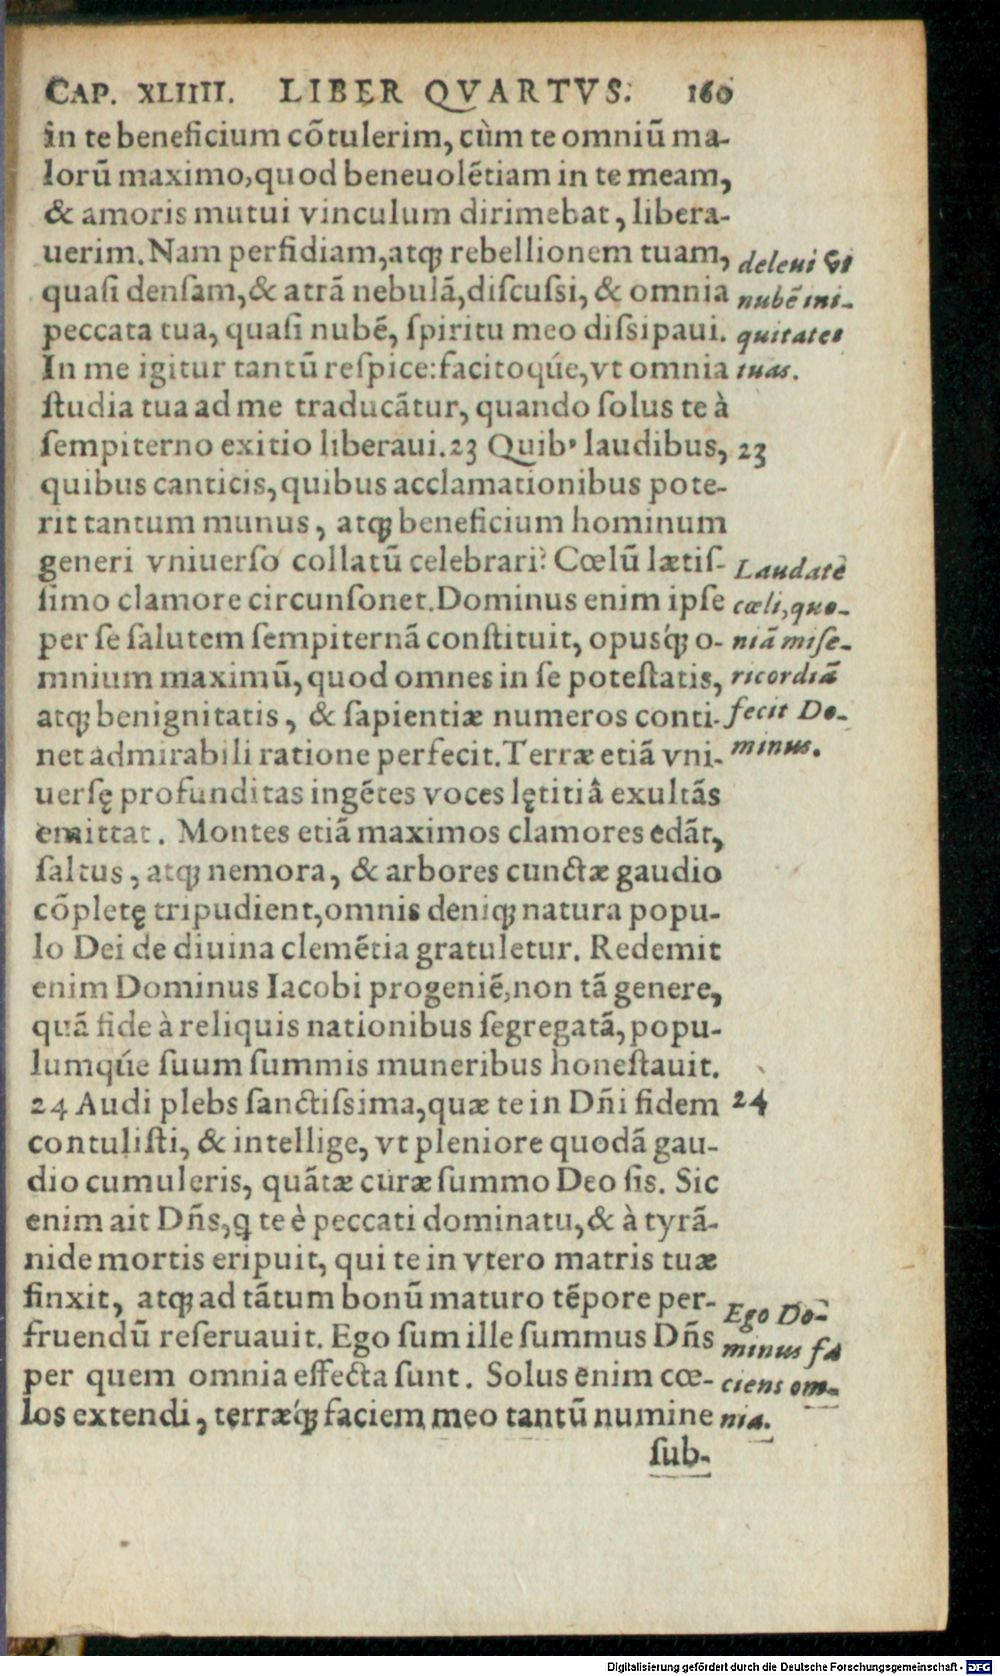 CAP. XLIIII. LIBER QVARTVS. 160
in te beneficium cõtulerim, cùm te omniũ ma-
lorũ maximo, quod beneuolẽtiam in te meam,
& amoris mutui vinculum dirimebat, libera-
uerim. Nam perfidiam, atq; rebellionem tuam,
quaſi denſam, & atrã nebulã, diſcuſsi, & omnia
peccata tua, quaſi nubẽ, ſpiritu meo diſsipaui.
In me igitur tantũ reſpice: facitoq́ue, vt omnia
ſtudia tua ad me traducãtur, quando ſolus te à
ſempiterno exitio liberaui. 23 Quibꝰ laudibus,
quibus canticis, quibus acclamationibus pote-
rit tantum munus, atq; beneficium hominum
generi vniuerſo collatũ celebrari? Cœlũ lætiſ-
ſimo clamore circunſonet. Dominus enim ipſe
per ſe ſalutem ſempiternã conſtituit, opusq́; o-
mnium maximũ, quod omnes in ſe poteſtatis,
atq; benignitatis, & ſapientiæ numeros conti-
net admirabili ratione perfecit. Terræ etiã vni-
uerſę profunditas ingẽtes voces lętitiâ exultãs
emittat. Montes etiã maximos clamores edãt,
ſaltus, atq; nemora, & arbores cunctæ gaudio
cõpletę tripudient, omnis deniq; natura popu-
lo Dei de diuina clemẽtia gratuletur. Redemit
enim Dominus Iacobi progeniẽ, non tã genere,
quã fide à reliquis nationibus ſegregatã, popu-
lumq́ue ſuum ſummis muneribus honeſtauit.
24 Audi plebs ſanctiſsima, quæ te in Dñi fidem
contuliſti, & intellige, vt pleniore quodã gau-
dio cumuleris, quãtæ curæ ſummo Deo ſis. Sic
enim ait Dñs, q te è peccati dominatu, & à tyrã-
nide mortis eripuit, qui te in vtero matris tuæ
finxit, atq; ad tãtum bonũ maturo tẽpore per-
fruendũ reſeruauit. Ego ſum ille ſummus Dñs
per quem omnia effecta ſunt. Solus enim cœ-
los extendi, terræq́; faciem meo tantũ numine
ſub-
deleui vt
nubẽ ini-
quitates
tuas.
23
Laudatè
cœli, quo-
niã miſe-
ricordiã
fecit Do-
minus.
24
Ego Do-
minus fa
ciens om-
nia.
Digitalisierung gefördert durch die Deutsche Forschungsgemeinschaft - DFG